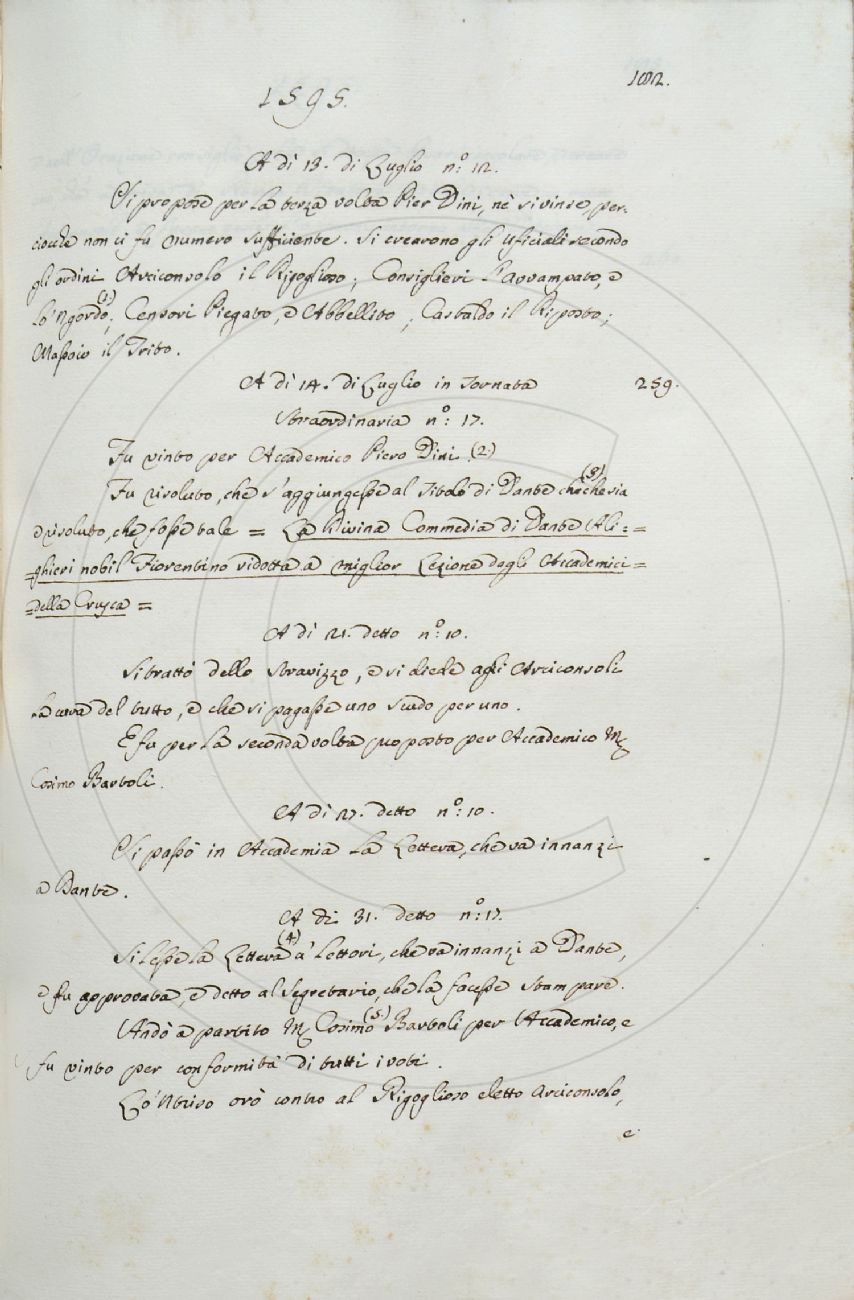 182.
1595.
A dì 13. di Luglio n.o: 12.
Si propose per la terza volta Pier Dini, nè si vinse, per-
ciocchè non ci fu numero sufficiente. Si crearono gli Uficiali secondo
gli ordini Arciconsolo il Rigoglioso; Consiglieri l'Avvampato, e
lo 'Ngordo (1.); Censori Piegato, e Abbellito; Castaldo il Riposto;
Massaio il Trito.
A dì 14. di Luglio in Tornata 259.
Straordinaria n.o: 17.
Fu vinto per Accademico Piero Dini. (2.)
Fu risoluto, che s'aggiugnesse al Titolo di Dante (3.) che sia
e risoluto, che fosse tale = La Divina Commedia di Dante Ali: =
= ghieri nobil Fiorentino ridotta a miglior Lezione dagli Accademici =
= della Crusca =
A dì 21. detto n.o: 10.
Si trattò dello Stravizzo, e si diede agli Arciconsoli
la cura del tutto, e che si pagasse uno scudo per uno.
E fu per la seconda volta proposto per Accademico M.
Cosimo Bartoli.
A dì 27. detto n.o: 10.
Si passò in Accademia la Lettera, che va innanzi
a Dante.
A dì 31. detto n.o: 17.
Si lesse la Lettera (4.) a' Lettori, che va innanzi a Dante,
e fu approvata, e detto al Segretario, che la facesse stampare.
Andò a partito M. Cosimo (5.) Bartoli per Accademico, e
fu vinto per conformità di tutti i voti.
Lo 'Ntriso orò contro al Rigoglioso eletto Arciconsolo,
e